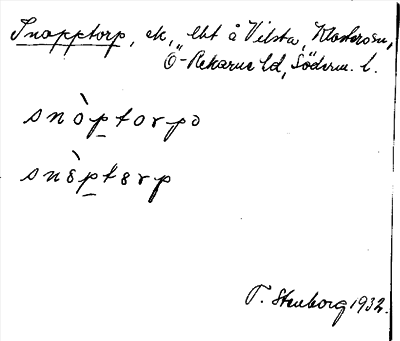 Snopptorp, ek, lht å Vilsta, Klosters sn,
Ö-Rekarne hd, Söderm. l.
snòptorpo
snèptərp
T. Stenborg 1932.